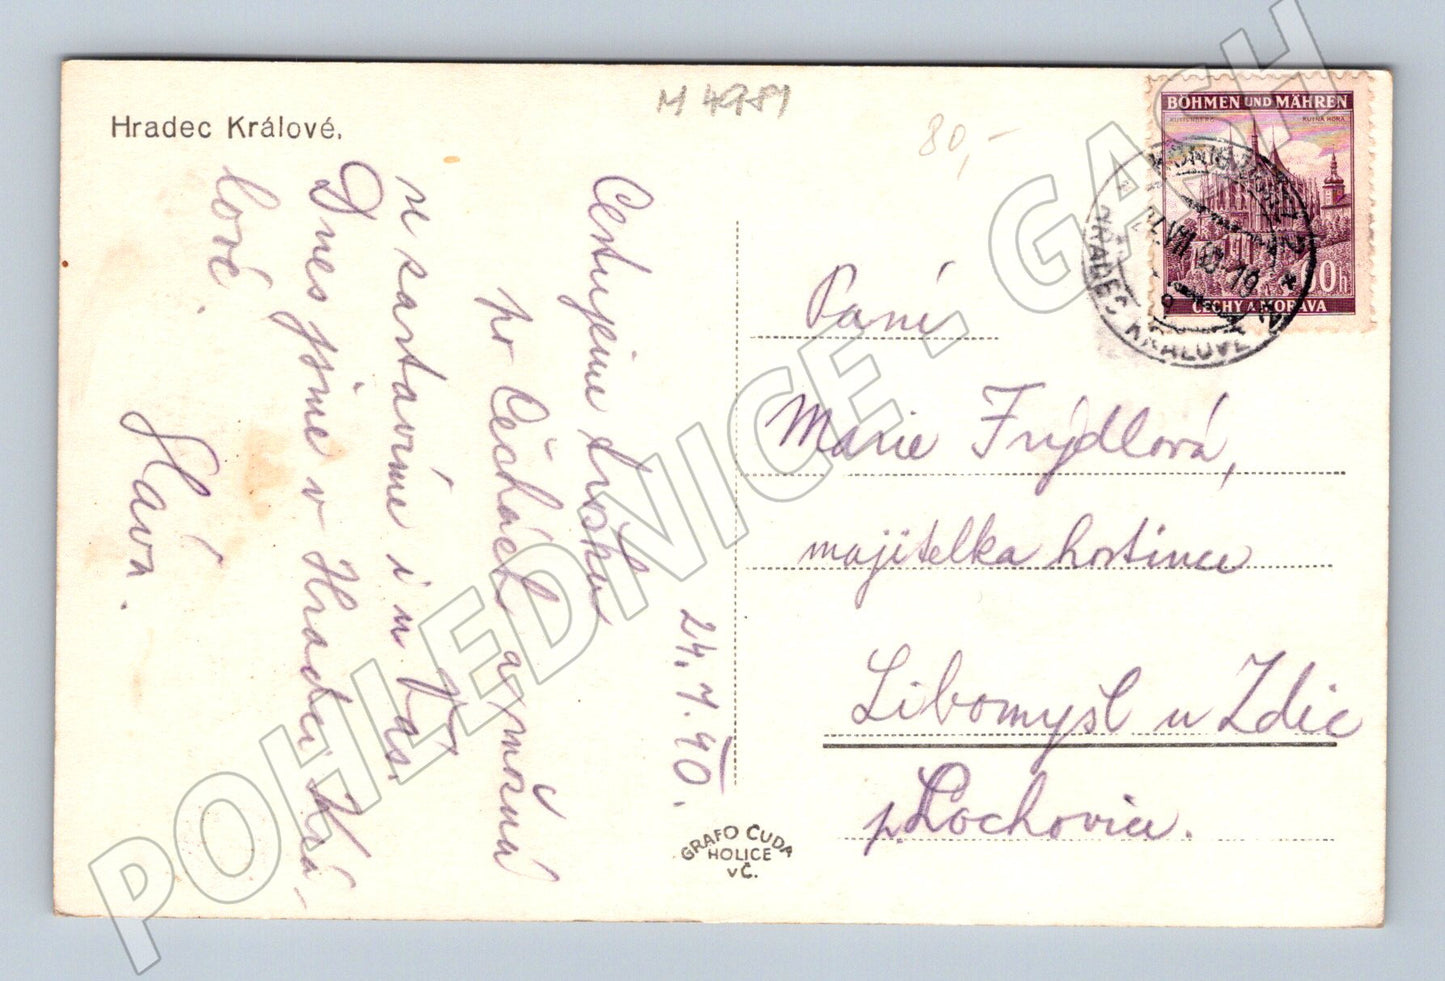 Hradec Králové.
M 4981
80,-
BÖHMEN UND MÄHREN
KUTTENBERG KUTNÁ HORA
ČECHY A MORAVA
HRADEC KRÁLOVÉ
24.7.40.
Cestujeme trochu
po Čechách a možná
se zastavíme i u Vás.
Dnes jsme v Hradci Krá-
lové.
Sláva.
Paní
Marie Frýdlová,
majitelka hostince
Libomyšl u Zdic
p. Lochovice.
GRAFO ČUDA
HOLICE
v Č.
POHLEDNICE - GASH